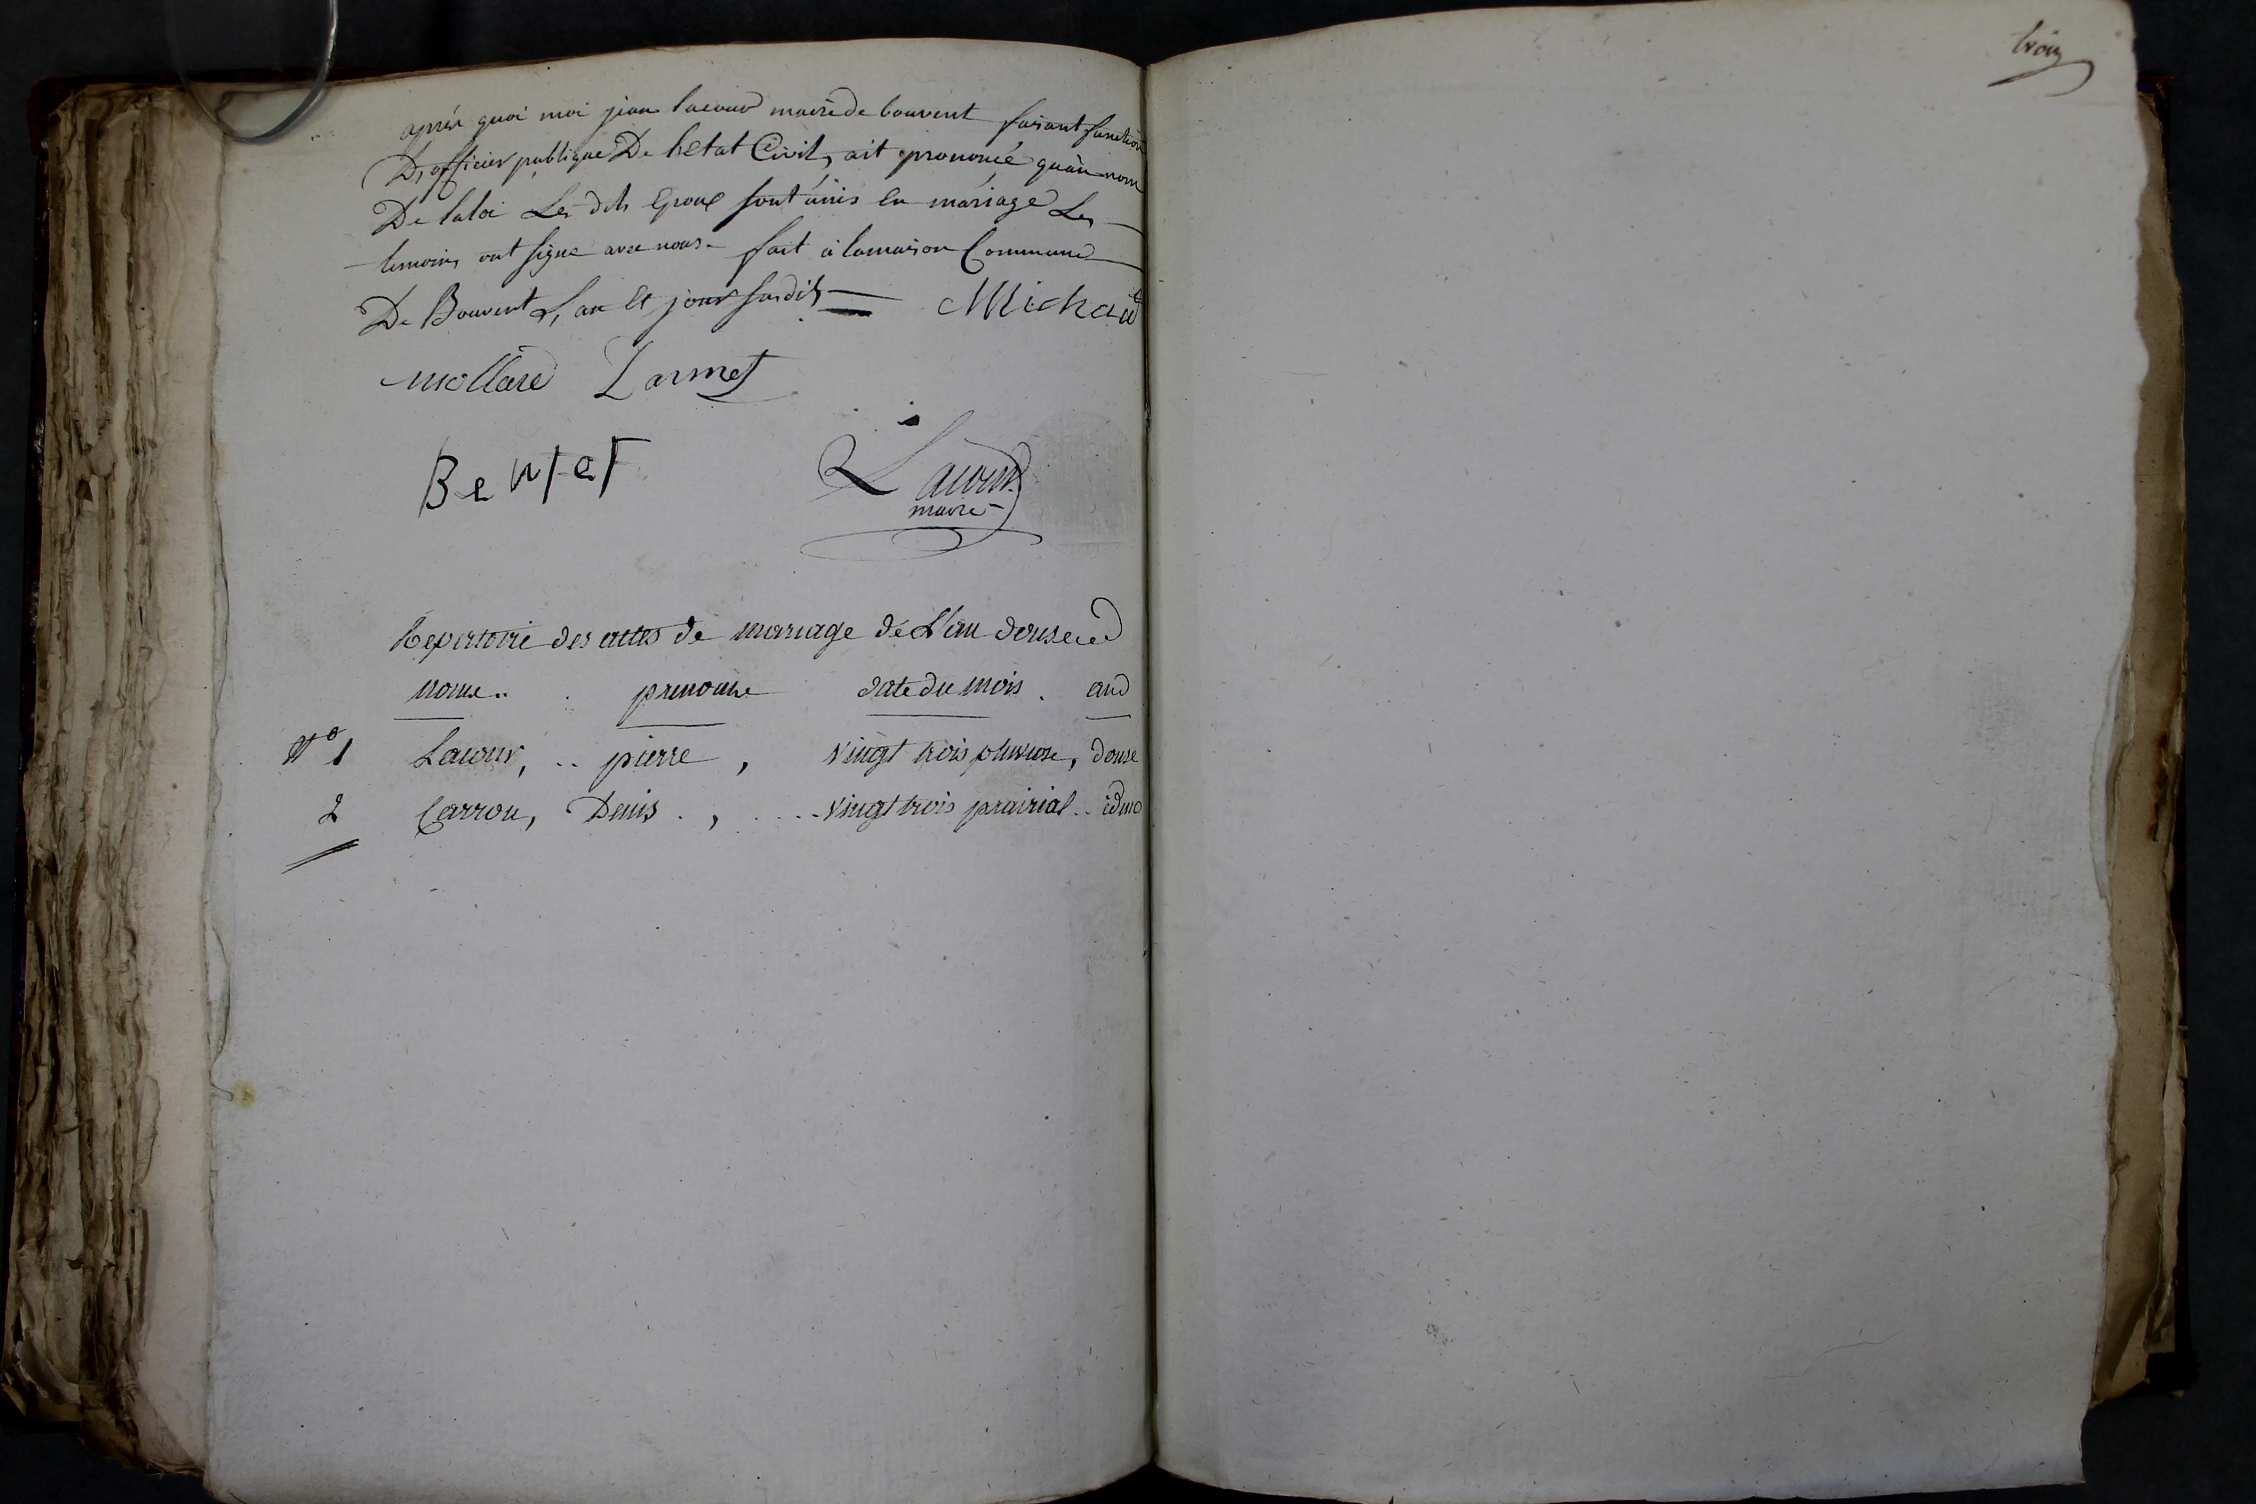 après quoi moi jean lacour maire de bouvent faisant fonction
D, officier publique De Letat Civil, ait prononcé quàu nom
De laloi Les dits Epoux sont únis en máriage Les
temoins ont signe avec nous fait à lamaison Commune
De Bouvent L, an Et jour susdits Michau
mollard Larmet
Bentet
Lacour
maire
trois
Repertoire des actes de mariage de L'an douse
nome.. prenome date du mois. and
N° 1 Lacour, .. pierre, vingt trois pluviose, douse
2 Carron, Denis ., ... vingt trois prairial .. idem